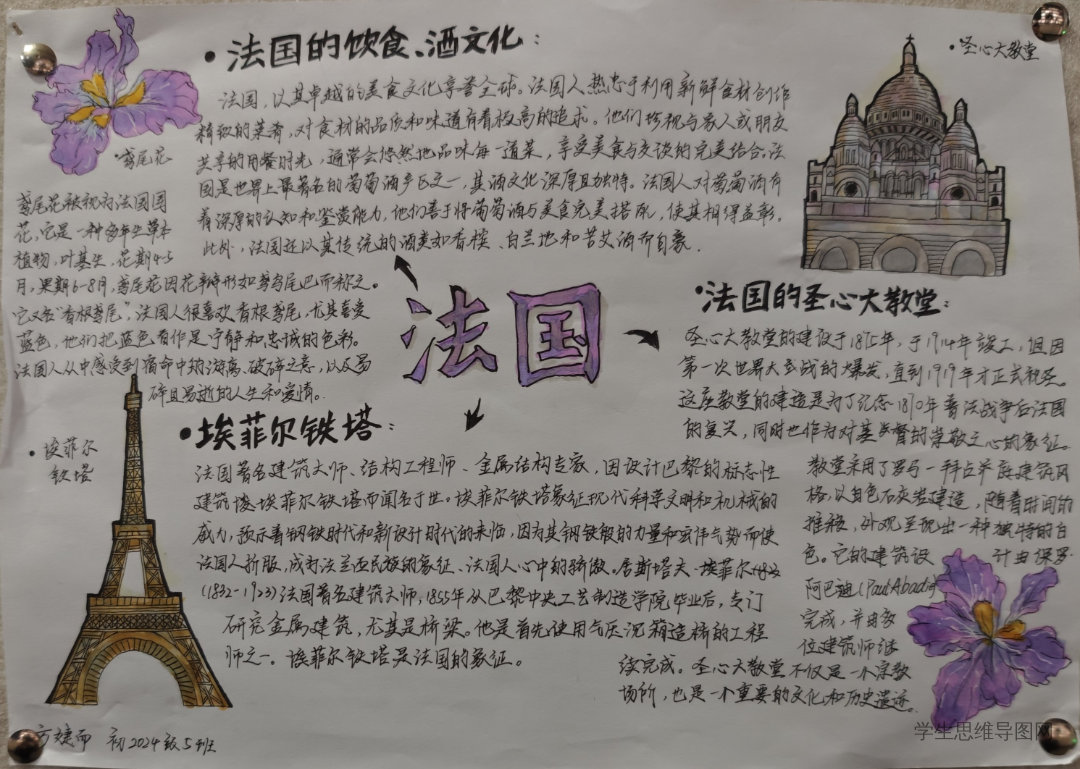 法国的饮食、酒文化:
法国,以其卓越的美食文化享誉全球。法国人热忠于利用新鲜食材创作
精致的菜肴,对食材的品质和味道有着极高的追求。他们珍视与家人或朋友
共享的用餐时光,通常会悠然地品味每一道菜,享受美食与交谈的完美结合。法
国是世界上最著名的葡萄酒产区之一,其酒文化深厚且独特。法国人对葡萄酒有
着深厚的认知和鉴赏能力,他们善于将葡萄酒与美食完美搭配,使其相得益彰。
此外,法国还以其传统的酒类如香槟、白兰地和苦艾酒而自豪.
鸢尾花
鸢尾花被视为法国国
花,它是一种多年生草本
植物,叶基生,花期4-5
月,果期6-8月,鸢尾花因花瓣形如鸢鸟尾巴而称之。
它又名"香根鸢尾",法国人很喜欢有根鸢尾,尤其喜爱
蓝色,他们把蓝色看作是宁静和忠诚的色彩。
法国人从中感受到宿命中的游离、破碎之意,以及易
碎且易逝的人生和爱情。
圣心大教堂
法国
法国的圣心大教堂:
圣心大教堂的建设于1875年,于1914年竣工,但因
第一次世界大战的爆发,直到1919年才正式祝圣。
这座教堂的建造是为了纪念1870年普法战争后法国
的复兴,同时也作为对基督的崇敬之心的象征。
教堂采用了罗马-拜占庭建筑风
格,以白色石灰岩建造,随着时间的
推移,外观呈现出一种独特的白
色。它的建筑设计由保罗·
阿巴迪(Paul Abadie)
完成,并由多
位建筑师继
续完成。圣心大教堂不仅是一个宗教
场所,也是一个重要的文化和历史遗迹。
埃菲尔铁塔:
埃菲尔
铁塔
法国著名建筑大师、结构工程师、金属结构专家,因设计巴黎的标志性
建筑埃菲尔铁塔而闻名于世。埃菲尔铁塔象征现代科学文明和机械的
威力,预示着钢铁时代和新设计时代的来临,因为其钢铁般的力量和宏伟气势而使
法国人折服,成为法兰西民族的象征、法国人心中的骄傲。居斯塔夫·埃菲尔
(1832-1923)法国著名建筑大师,1855年从巴黎中央工艺制造学院毕业后,专门
研究金属建筑,尤其是桥梁。他是首先使用气压沉箱造桥的工程
师之一。埃菲尔铁塔是法国的象征。
初2024级5班
学生思维导图网